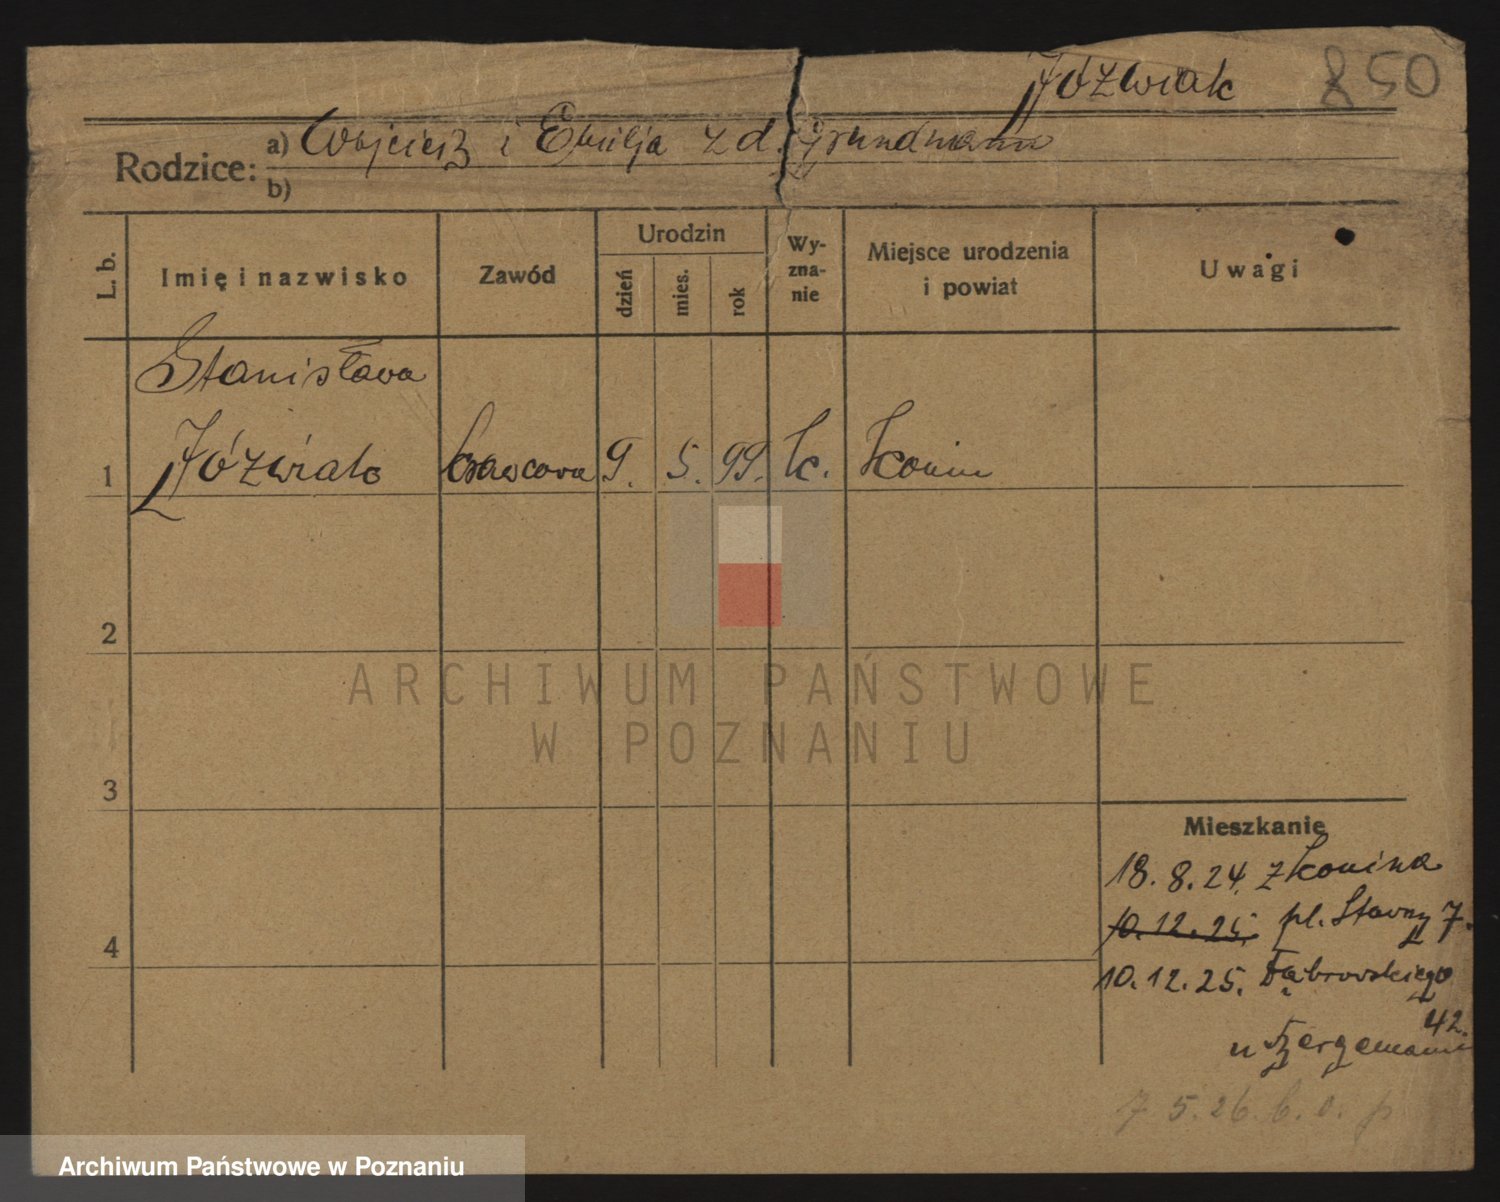 Józwiak 850
Rodzice: a) Wojciech i Emilja z d. Grundmann
b)
L. b.
Imię i nazwisko
Zawód
Urodzin
dzień
mies.
rok
Wy-
zna-
nie
Miejsce urodzenia
i powiat
Uwagi
Stanisława
1 Józwiak krawcowa 9. 5. 99. k. Konin
2
3
4
Mieszkanie
18.8.24. z Konina
10.12.25. pl. Stawny 7.
10.12.25. Dąbrowskiego
42.
u Bergemann
7.5.26. b. o. p
ARCHIWUM PAŃSTWOWE
W POZNANIU
Archiwum Państwowe w Poznaniu